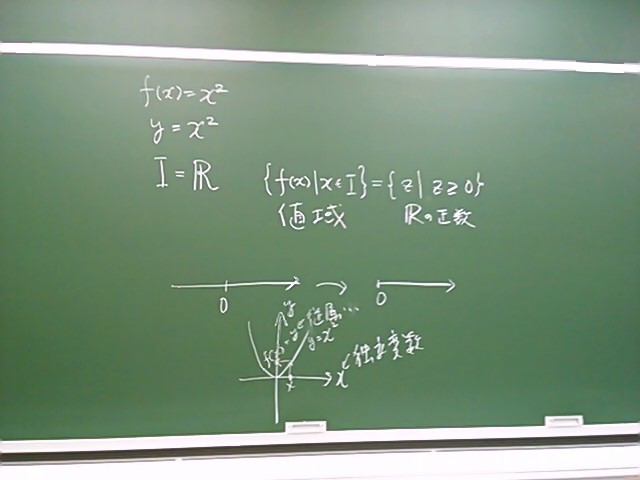 f(x)=x²
y=x²
I=ℝ
{f(x)|x∈I}={z|z≥0}
値域 ℝの正数
0 0
y
従属…
y=x²
f(x)
x
x
独立変数